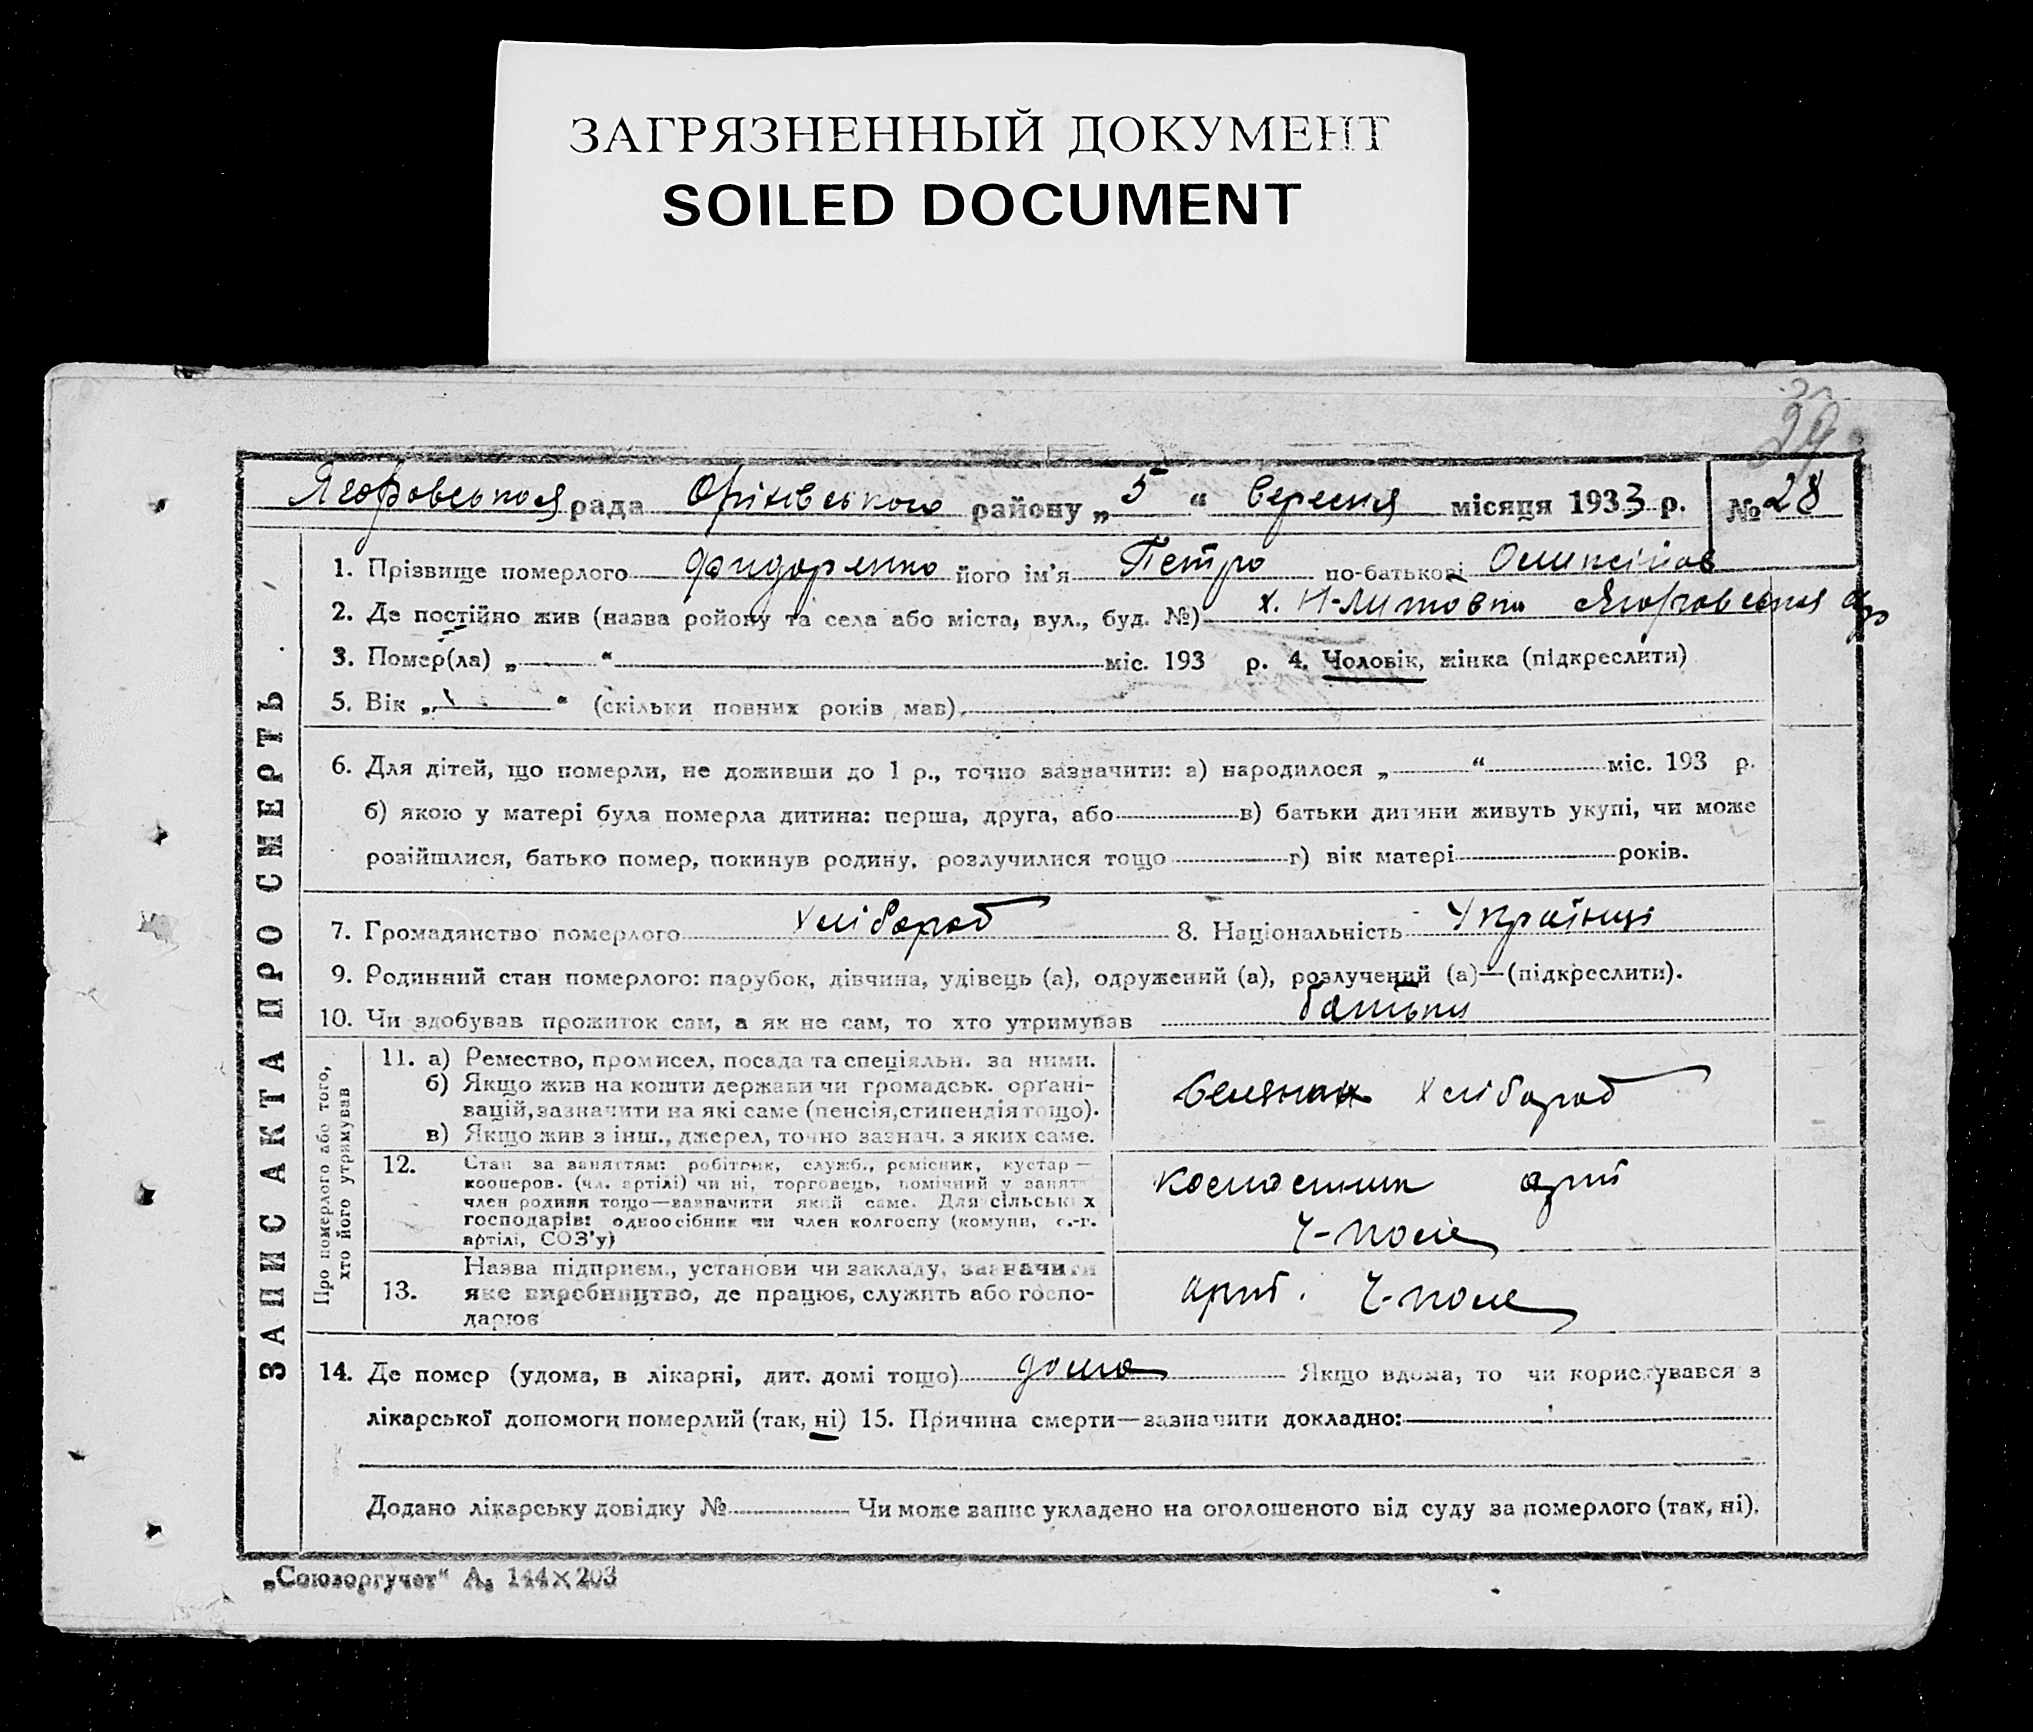 ЗАГРЯЗНЕННЫЙ ДОКУМЕНТ
SOILED DOCUMENT
29
рада Оріхівського району „5“ Вересня місяця 1933 р. № 28
ЗАПИС АКТА ПРО СМЕРТЬ
1. Прізвище померлого Фидоренко його ім'я Петро по-батькові
2. Де постійно жив (назва ройону та села або міста, вул., буд. №) х. Н-Литовка
3. Помер(ла) „ “ міс. 193 р. 4. Чоловік, жінка (підкреслити)
5. Вік „ “ (скільки повних років мав)
6. Для дітей, що померли, не доживши до 1 р., точно зазначити: а) народилося „ “ міс. 193 р.
б) якою у матері була померла дитина: перша, друга, або в) батьки дитини живуть укупі, чи може
розійшлися, батько помер, покинув родину, розлучилися тощо г) вік матері років.
7. Громадянство померлого Хлібороб 8. Національність Українці
9. Родинний стан померлого: парубок, дівчина, удівець (а), одружений (а), розлучений (а)—(підкреслити).
10. Чи здобував прожиток сам, а як не сам, то хто утримував батьки
Про померлого або того,
хто його утримував
11. а) Ремество, промисел, посада та спеціяльн. за ними.
б) Якщо жив на кошти держави чи громадськ. органі-
зацій, зазначити на які саме (пенсія, стипендія тощо).
в) Якщо жив з інш., джерел, точно зазнач. з яких саме.
Селянин Хлібороб
12. Стан за заняттям: робітник, служб., ремісник, кустар—
кооперов. (чл. артілі) чи ні, торговець, помічний у занятт
член родини тощо—зазначити який саме. Для сільських
господарів: одноосібник чи член колгоспу (комуни, с.-г.
артілі, СОЗ'у)
Колгоспник арті
Ч-поле
13. Назва підприєм., установи чи закладу, зазначити
яке виробництво, де працює, служить або госпо-
дарює
арті. Ч-поле
14. Де помер (удома, в лікарні, дит. домі тощо) дома Якщо вдома, то чи користувався з
лікарської допомоги померлий (так, ні) 15. Причина смерти—зазначити докладно:
Додано лікарську довідку № Чи може запис укладено на оголошеного від суду за померлого (так, ні).
„Союзоргучет“ А₅ 144×203